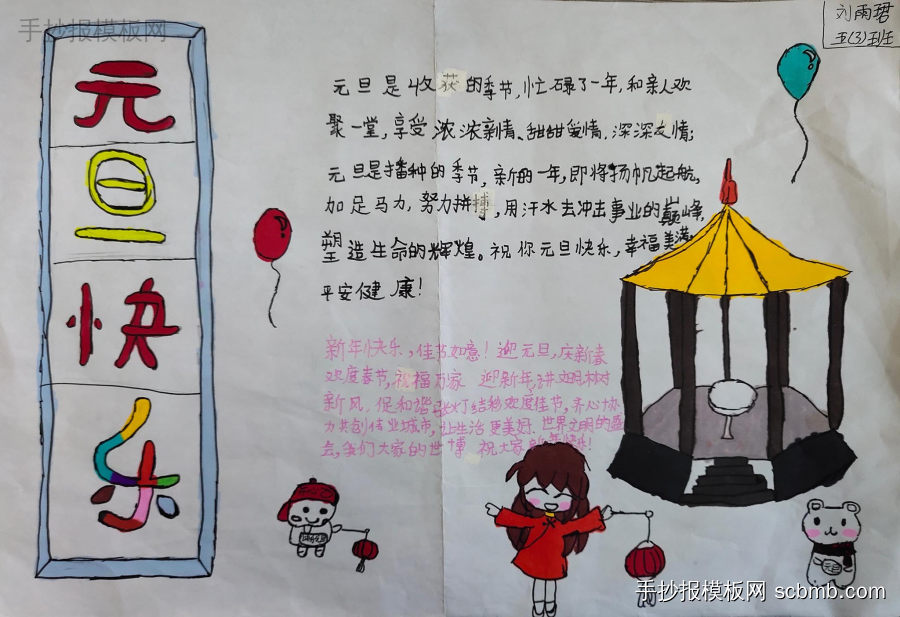 手抄报模板网
刘雨珺
五(3)班
元
旦
快
乐
元旦是收获的季节,忙碌了一年,和亲人欢
聚一堂,享受浓浓亲情、甜甜爱情、深深友情;
元旦是播种的季节,新的一年,即将扬帆起航,
加足马力,努力拼搏,用汗水去冲击事业的巅峰,
塑造生命的辉煌。祝你元旦快乐,幸福美满,
平安健康!
新年快乐,佳节如意!迎元旦,庆新春
欢度春节,祝福万家 迎新年,讲文明,树
新风,促和谐 张灯结彩欢度佳节,齐心协
力共创伟业城市,让生活更美好.世界文明的盛
会,我们大家的世博 祝大家新年快乐!
手抄报模板网 scbmb.com